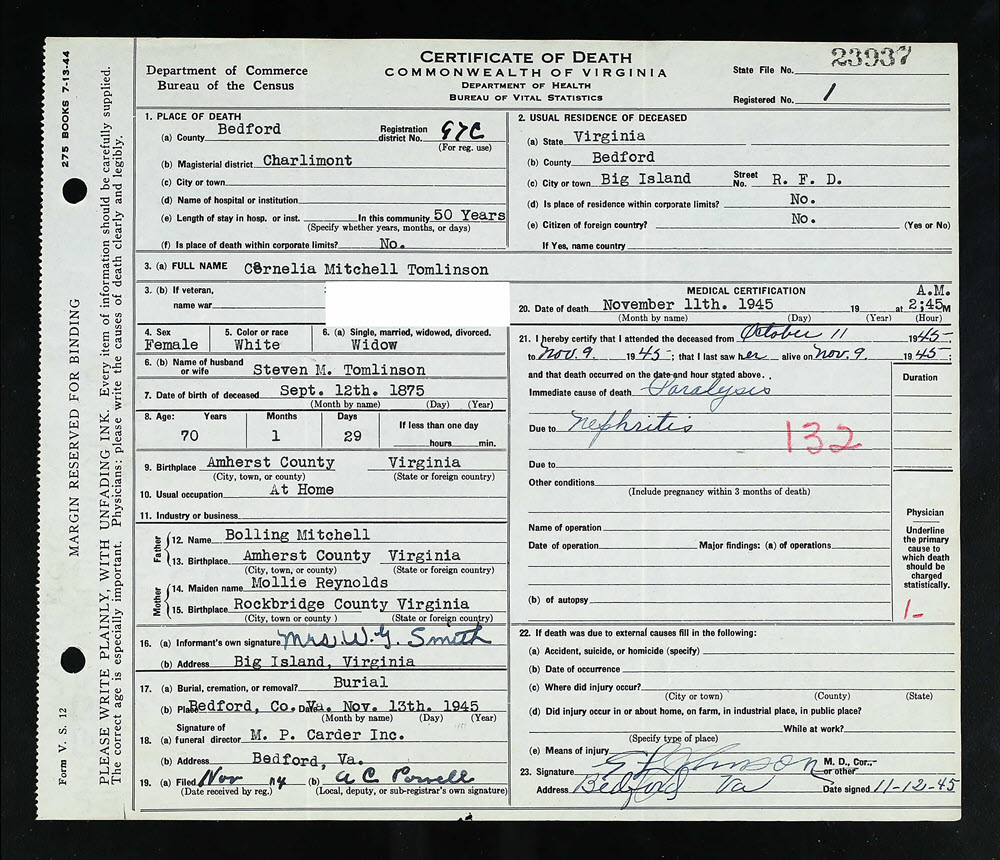 275 BOOKS 7-13-44
MARGIN RESERVED FOR BINDING
PLEASE WRITE PLAINLY, WITH UNFADING INK. Every item of information should be carefully supplied.
The correct age is especially important. Physicians: please write the causes of death clearly and legibly.
Form V. S. 12
Department of Commerce
Bureau of the Census
CERTIFICATE OF DEATH
COMMONWEALTH OF VIRGINIA
DEPARTMENT OF HEALTH
BUREAU OF VITAL STATISTICS
State File No. 23937
Registered No. 1
1. PLACE OF DEATH
(a) County Bedford Registration district No. 97C
(For reg. use)
(b) Magisterial district Charlimont
(c) City or town
(d) Name of hospital or institution
(e) Length of stay in hosp. or inst. In this community 50 Years
(Specify whether years, months, or days)
(f) Is place of death within corporate limits? No.
2. USUAL RESIDENCE OF DECEASED
(a) State Virginia
(b) County Bedford
(c) City or town Big Island Street No. R. F. D.
(d) Is place of residence within corporate limits? No.
(e) Citizen of foreign country? No. (Yes or No)
If Yes, name country
3. (a) FULL NAME Cornelia Mitchell Tomlinson
3. (b) If veteran,
name war
4. Sex 5. Color or race 6. (a) Single, married, widowed, divorced.
Female White Widow
6. (b) Name of husband
or wife Steven M. Tomlinson
7. Date of birth of deceased Sept. 12th. 1875
(Month by name) (Day) (Year)
8. Age: Years Months Days If less than one day
70 1 29 hours min.
9. Birthplace Amherst County Virginia
(City, town, or county) (State or foreign country)
10. Usual occupation At Home
11. Industry or business
Father
12. Name Bolling Mitchell
13. Birthplace Amherst County Virginia
(City, town, or county) (State or foreign country)
Mother
14. Maiden name Mollie Reynolds
15. Birthplace Rockbridge County Virginia
(City, town, or county ) (State or foreign country)
16. (a) Informant's own signature Mrs W. G. Smith
(b) Address Big Island, Virginia
17. (a) Burial, cremation, or removal? Burial
(b) Place Bedford, Co. Va. Date Nov. 13th. 1945
(Month by name) (Day) (Year)
Signature of
18. (a) funeral director M. P. Carder Inc.
(b) Address Bedford, Va.
19. (a) Filed Nov (b) A C Powell
(Date received by reg.) (Local, deputy, or sub-registrar's own signature)
MEDICAL CERTIFICATION
20. Date of death November 11th. 1945 19 at 2;45 A.M. M
(Month by name) (Day) (Year) (Hour)
21. I hereby certify that I attended the deceased from October 11 1945
to Nov. 9. 1945; that I last saw her alive on Nov. 9. 1945
and that death occurred on the date and hour stated above.
Duration
Immediate cause of death Paralysis
Due to Nephritis
132
Due to
Other conditions
(Include pregnancy within 3 months of death)
Name of operation
Date of operation Major findings: (a) of operations
(b) of autopsy
Physician
Underline
the primary
cause to
which death
should be
charged
statistically.
1-
22. If death was due to external causes fill in the following:
(a) Accident, suicide, or homicide (specify)
(b) Date of occurrence
(c) Where did injury occur?
(City or town) (County) (State)
(d) Did injury occur in or about home, on farm, in industrial place, in public place?
While at work?
(Specify type of place)
(e) Means of injury
23. Signature Johnson M. D., Cor.,
or other
Address Bedford Va Date signed 11-12-45